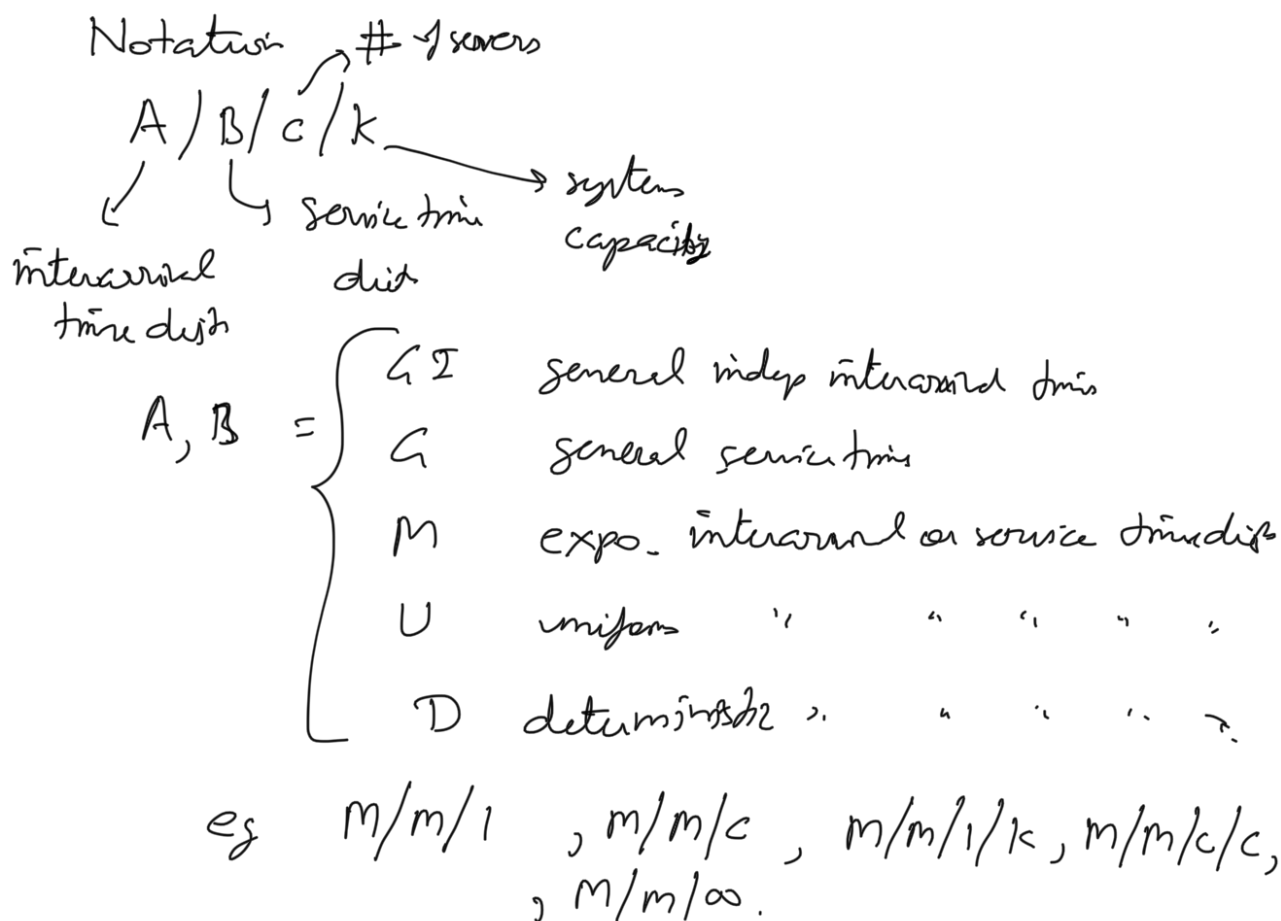 Notation # of servers
A/B/c/k
system
capacity
service time
dist
interarrival
time dist
A, B =
GI general indep interarrival times
G general service times
M expo. interarrival or service time dist
U uniform " " " " "
D deterministic " " " " "
eg M/M/1, M/M/c, M/M/1/k, M/M/c/c,
, M/M/∞.